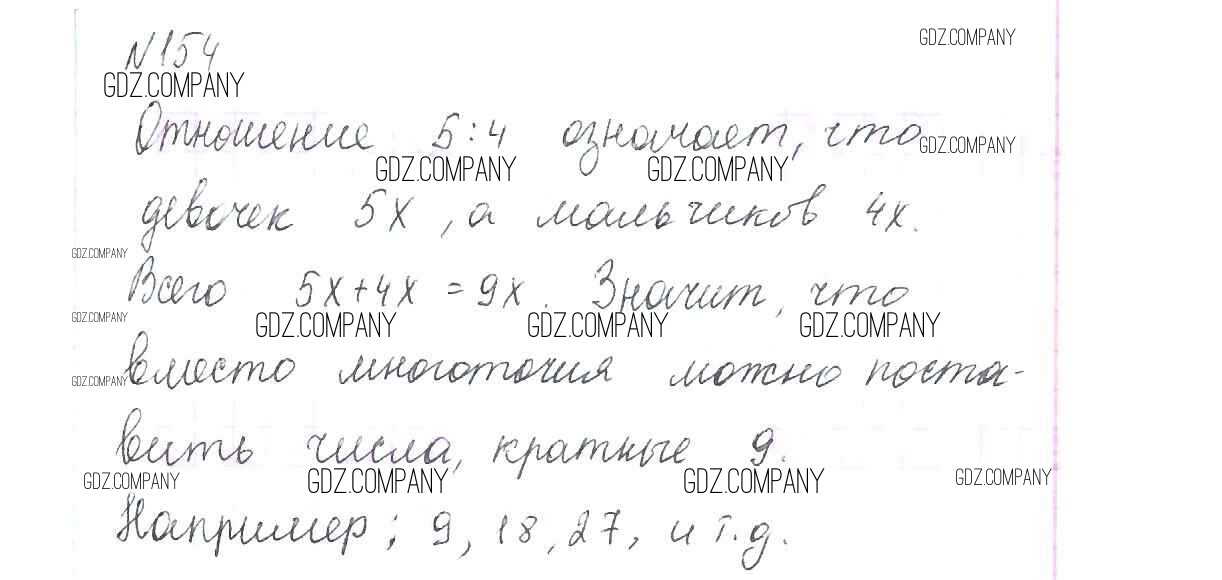 N 154
GDZ.COMPANY
GDZ.COMPANY
Отношение 5:4 означает, что
GDZ.COMPANY
GDZ.COMPANY GDZ.COMPANY
девочек 5х, а мальчиков 4х.
GDZ.COMPANY
Всего 5х+4х = 9х. Значит, что
GDZ.COMPANY
GDZ.COMPANY GDZ.COMPANY GDZ.COMPANY
вместо многоточия можно поста-
GDZ.COMPANY
вить числа, кратные 9.
GDZ.COMPANY GDZ.COMPANY GDZ.COMPANY GDZ.COMPANY
Например; 9, 18, 27, и т.д.